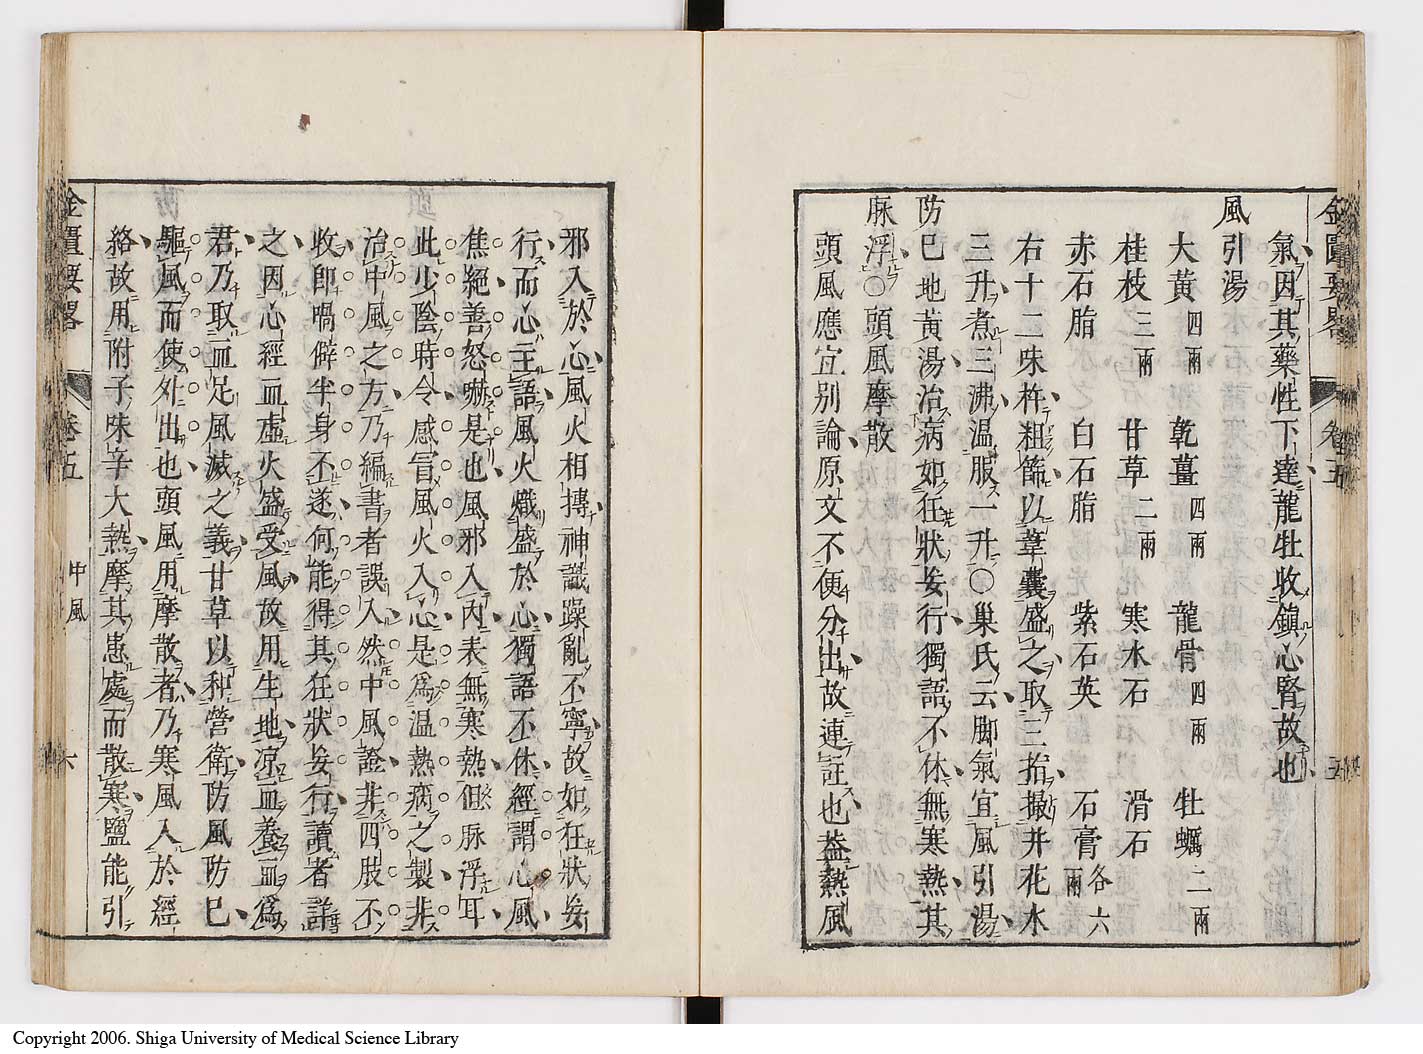 金匱要畧 卷五 五
氣因其藥性下達龍牡收鎮心腎故也
風引湯
大黃四兩 乾薑四兩 龍骨四兩 牡蠣二兩
桂枝三兩 甘草二兩 寒水石 滑石
赤石脂 白石脂 紫石英 石膏各六兩
右十二味杵粗篩以韋囊盛之取三指撮井花水
三升煮三沸溫服一升○巢氏云脚氣宜風引湯
防已地黃湯治病如狂狀妄行獨語不休無寒熱其
脉浮○頭風摩散
頭風應宜別論原文不便分出故連註也葢熱風
邪入於心風火相摶神識躁亂不寧故如狂狀妄
行而心主語風火熾盛於心獨語不休經謂心風
焦絕善怒嚇是也風邪入內表無寒熱但脉浮耳
此少陰時令感冒風火入心是爲溫熱病之製非
治中風之方乃編書者誤入然中風證非四肢不
收卽喎僻半身不遂何能得其狂狀妄行讀者詳
之因心經血虛火盛受風故用生地凉血養血爲
君乃取血足風滅之義甘草以和營衛防風防已
驅風而使外出也頭風用摩散者乃寒風入於經
絡故用附子味辛大熱摩其患處而散寒鹽能引
金匱要畧 卷五 中風 六
Copyright 2006. Shiga University of Medical Science Library